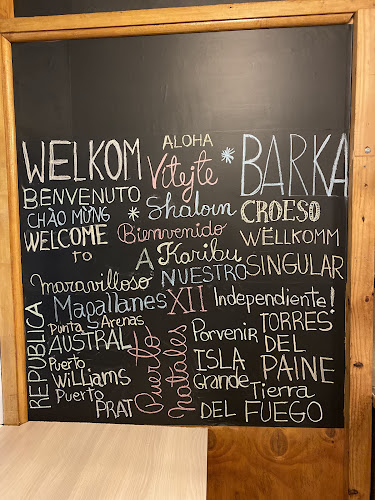 ALOHA
WELKOM Vitejte * BARKA
BENVENUTO * Shalom CROESO
CHÀO MỪNG
WELCOME Bienvenido WËLLKOMM
TO A Karibu
maravilloso NUESTRO SINGULAR
Magallanes XII Independiente!
REPUBLICA
Punta Arenas
AUSTRAL
Puerto
WILLIAMS
Puerto
PRAT
Puerto
natales
Porvenir
ISLA
Grande
DEL
TORRES
DEL
PAINE
Tierra
FUEGO